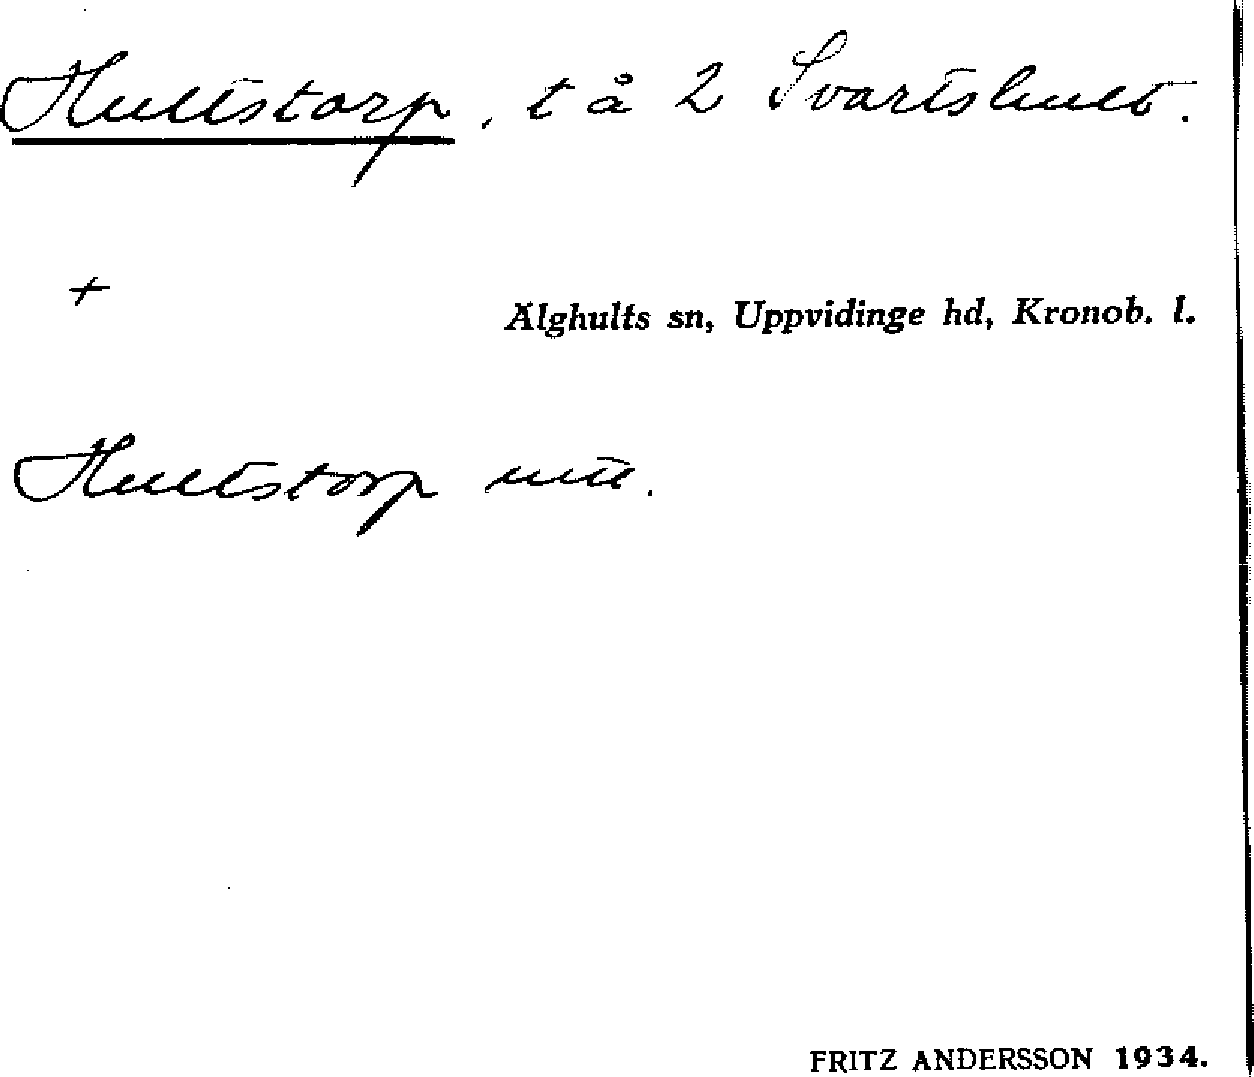 Hultstorp, t å 2 Svartshult.
+
Älghults sn, Uppvidinge hd, Kronob. l.
Hultstorp
FRITZ ANDERSSON 1934.